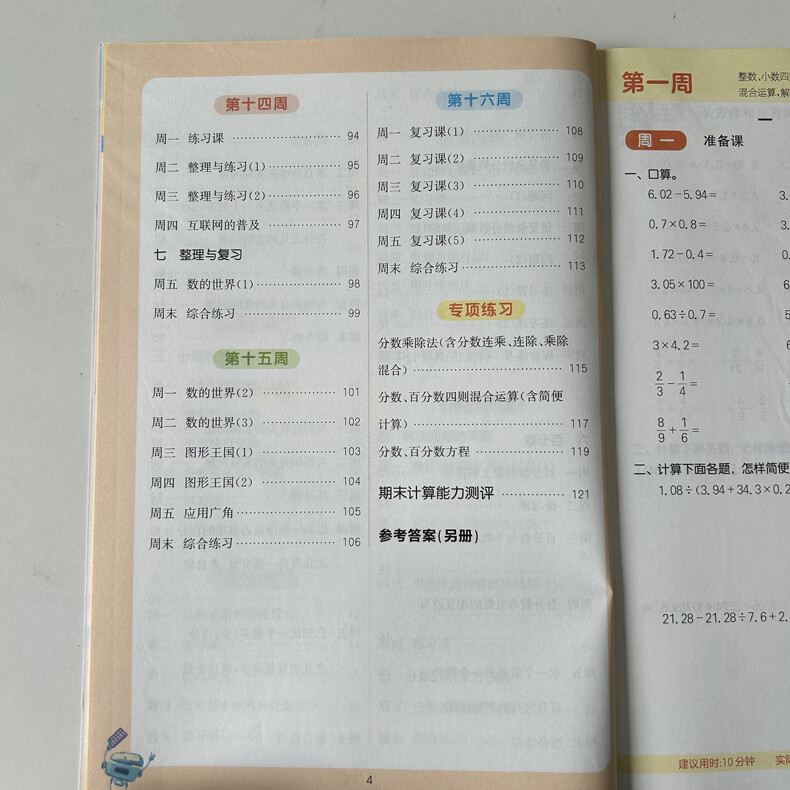 第十四周
周一 练习课 …… 94
周二 整理与练习(1) …… 95
周三 整理与练习(2) …… 96
周四 互联网的普及 …… 97
七 整理与复习
周五 数的世界(1) …… 98
周末 综合练习 …… 99
第十五周
周一 数的世界(2) …… 101
周二 数的世界(3) …… 102
周三 图形王国(1) …… 103
周四 图形王国(2) …… 104
周五 应用广角 …… 105
周末 综合练习 …… 106
第十六周
周一 复习课(1) …… 108
周二 复习课(2) …… 109
周三 复习课(3) …… 110
周四 复习课(4) …… 111
周五 复习课(5) …… 112
周末 综合练习 …… 113
专项练习
分数乘除法(含分数连乘、连除、乘除
混合) …… 115
分数、百分数四则混合运算(含简便
计算) …… 117
分数、百分数方程 …… 119
期末计算能力测评 …… 121
参考答案(另册)
4
第一周
整数、小数四
混合运算,解
周一 准备课
一、口算。
6.02-5.94= 3.
0.7×0.8= 3.
1.72-0.4= 0.
3.05×100= 6
0.63÷0.7= 5
3×4.2= 6
2/3-1/4=
8/9+1/6=
二、计算下面各题,怎样简便
1.08÷(3.94+34.3×0.2
21.28-21.28÷7.6+2.
建议用时:10分钟 实际